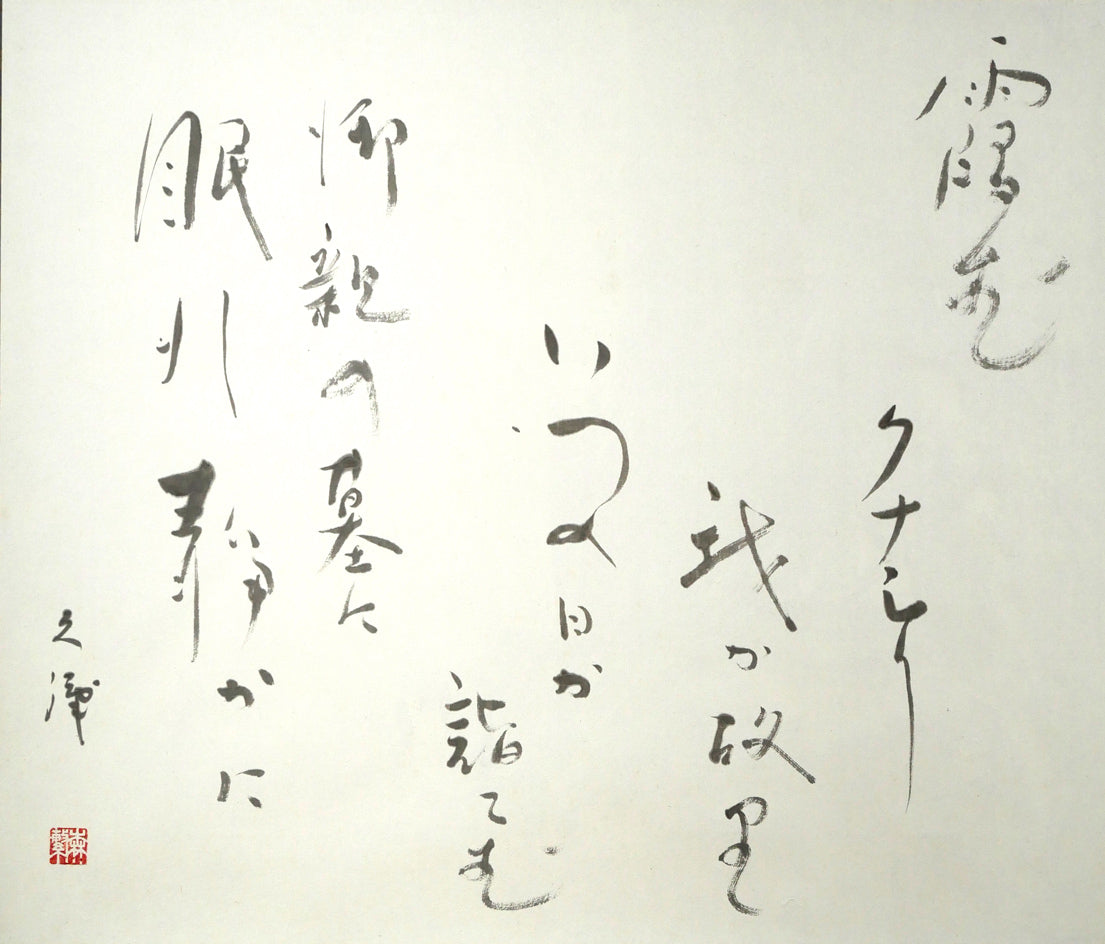 霞む
クナシリ
我か故里
いつの日か
詣てむ
御親の墓に
眠り静かに